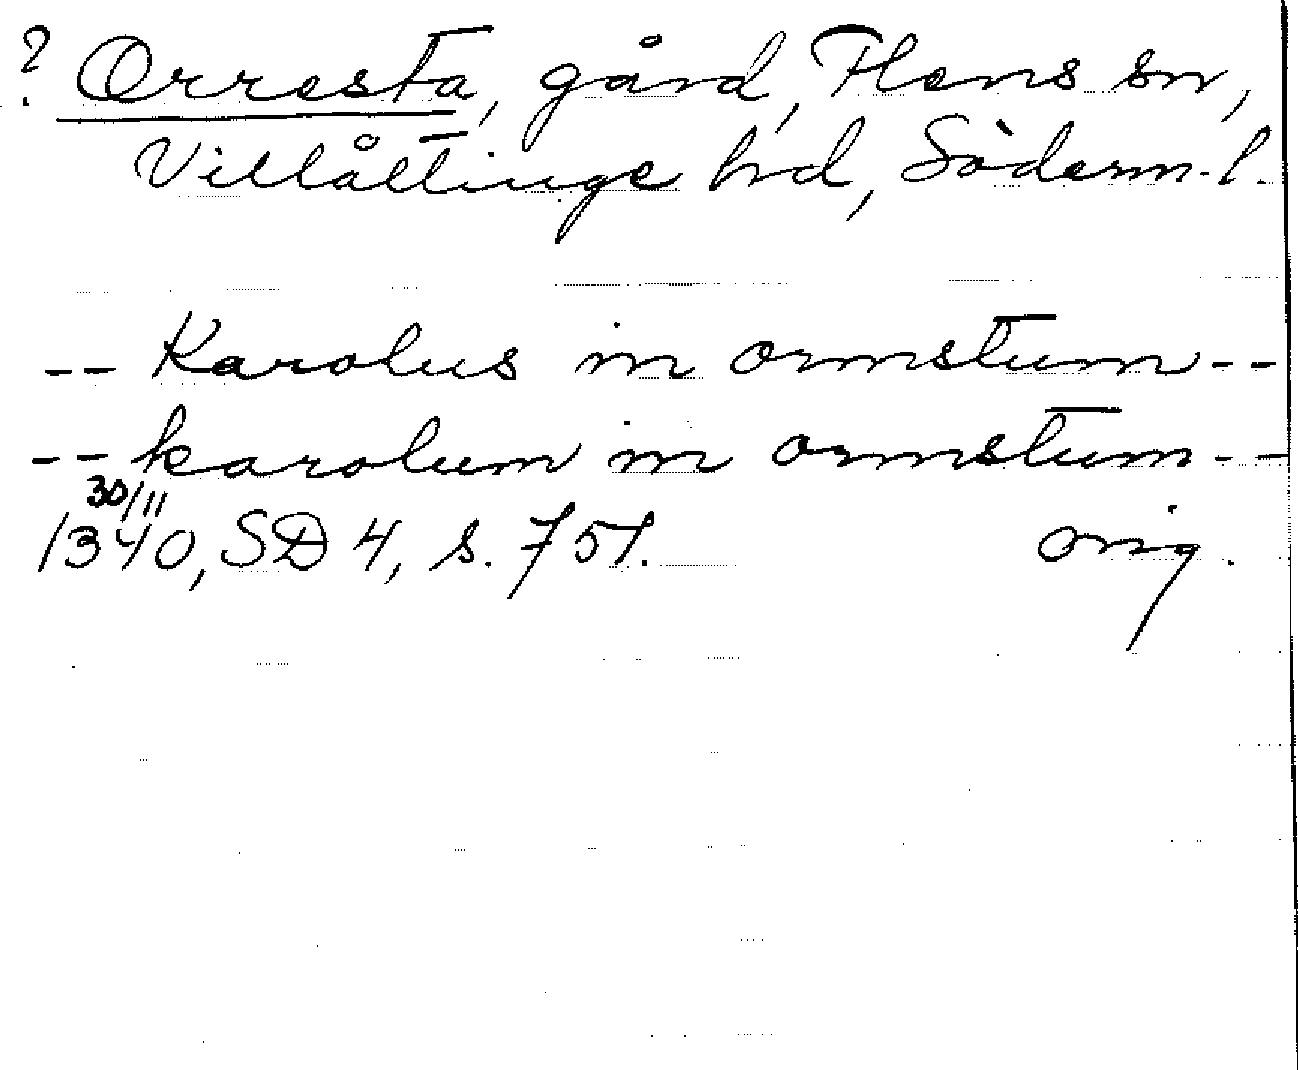 ? Orresta, gård, Flens sn,
Villåttinge hd, Söderm. l.
-- Karolus in ormstum --
-- karolum in ormstum --
30/11
1340, SD 4, s. 751. orig.